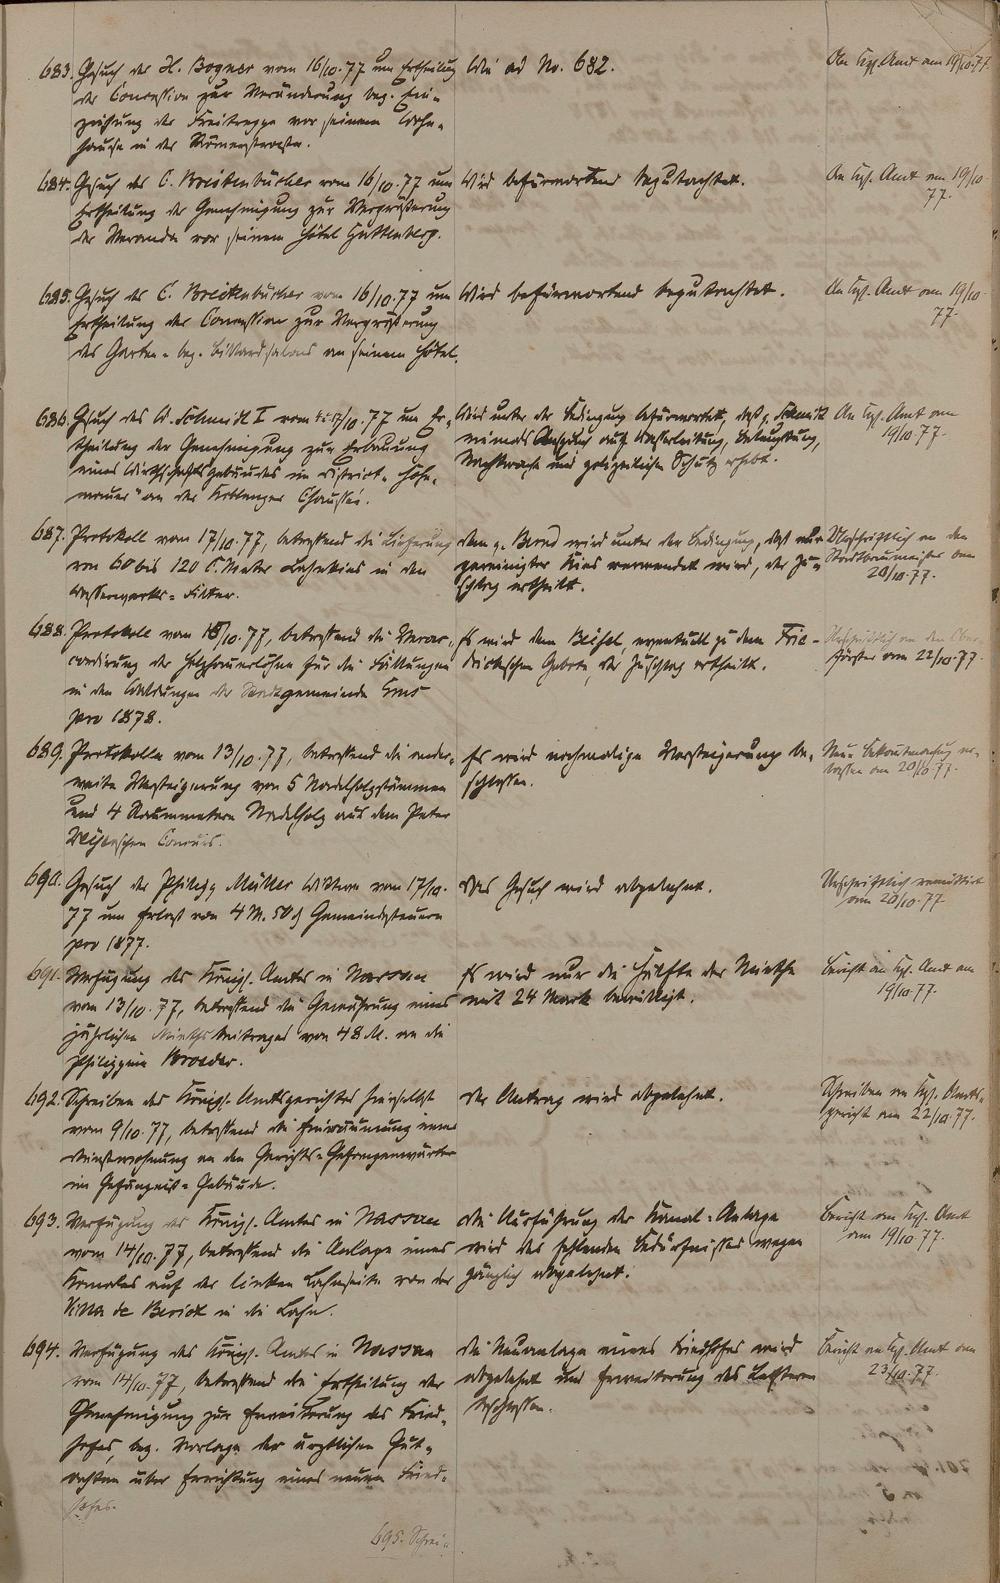 683. Gesuch des H. Bogner vom 16/10.77 um Ertheilung
der Concession zur Veränderung bez. Ein-
ziehung der Freitreppe vor seinem Wohn-
hause in der Römerstrasse.
Wie ad No. 682.
An Kgl. Amt am 19/10.77.
684. Gesuch des C. Breidenbücher vom 16/10.77 um
Ertheilung der Genehmigung zur Vergrößerung
der Veranda vor seinem Hôtel Guttenberg.
Wird befürwortend begutachtet.
An Kgl. Amt am 19/10.
77.
685. Gesuch des C. Breidenbücher vom 16/10.77 um
Ertheilung der Concession zur Vergrößerung
des Garten- bez. Billardsalons an seinem Hôtel.
Wird befürwortend begutachtet.
An Kgl. Amt am 19/10.
77.
686. Gesuch des W. Schmidt I vom 17/10.77 um Er-
theilung der Genehmigung zur Erbauung
eines Wirthschaftsgebäudes im District "Hohe-
mauer" an der Koblenzer Chaussée.
Wird unter der Bedingung befürwortet, daß p. Schmidt
niemals Anspruch auf Wasserleitung, Beleuchtung,
Nachtwache und polizeilichen Schutz erhebt.
An Kgl. Amt am
19/10.77.
687. Protokoll vom 17/10.77, betreffend die Lieferung
von 60 bis 120 C. Meter Lahnkies in den
Wasserwerks-Filter.
Dem p. Bernd wird unter der Bedingung, daß nur
gereinigter Kies verwendet wird, der Zu-
schlag ertheilt.
Abschriftlich an den
Stadtbaumeister am
20/10.77.
688. Protokoll vom 18/10.77, betreffend die Verac-
cordirung der Holzhauerlöhne für die Fällungen
in den Waldungen der Stadtgemeinde Ems
pro 1878.
Es wird dem eventuell zu dem
Gebote, der Zuschlag ertheilt.
Urschriftlich an den Ober-
förster am 22/10.77.
689. Protokolle vom 13/10.77, betreffend die ander-
weite Versteigerung von 5 Nadelholzstämmen
und 4 Raummetern Nadelholz aus dem Peter
Es wird nochmalige Versteigerung be-
schlossen.
Neue Bekanntmachung er-
lassen am 20/10.77.
690. Gesuch der Philipp Müller Wittwe vom 17/10.
77 um Erlaß von 4 M. 50 ₰ Gemeindesteuern
pro 1877.
Das Gesuch wird abgelehnt.
Urschriftlich remittirt
am 20/10.77.
691. Verfügung des Königl. Amtes in Nassau
vom 13/10.77, betreffend die Gewährung eines
jährlichen Miethsbeitrages von 48 M. an die
Philippine Broeder.
Es wird nur die Hälfte der Miethe
mit 24 Mark bewilligt.
Bericht an Kgl. Amt am
19/10.77.
692. Schreiben des Königl. Amtsgerichtes hierselbst
vom 9/10.77, betreffend die Einräumung einer
Dienstwohnung an den Gerichts-Gefangenwärter
im Gefängniß-Gebäude.
Der Antrag wird abgelehnt.
Schreiben an Kgl. Amts-
gericht am 22/10.77.
693. Verfügung des Königl. Amtes in Nassau
vom 14/10.77, betreffend die Anlage eines
Kanales auf der linken Lahnseite von der
Villa de in die Lahn.
Die Ausführung der Kanal-Anlage
wird des fehlenden Bedürfnisses wegen
gänzlich abgelehnt.
Bericht an Kgl. Amt
am 19/10.77.
694. Verfügung des Königl. Amtes in Nassau
vom 14/10.77, betreffend die Ertheilung der
Genehmigung zur Erweiterung des Fried-
hofes, bez. Vorlage der ärztlichen Gut-
achten über Errichtung eines neuen Fried-
hofes.
Die Neuanlage eines Friedhofes wird
abgelehnt und Erweiterung des Letzteren
beschlossen.
Bericht an Kgl. Amt am
23/10.77.
695. Schrei-